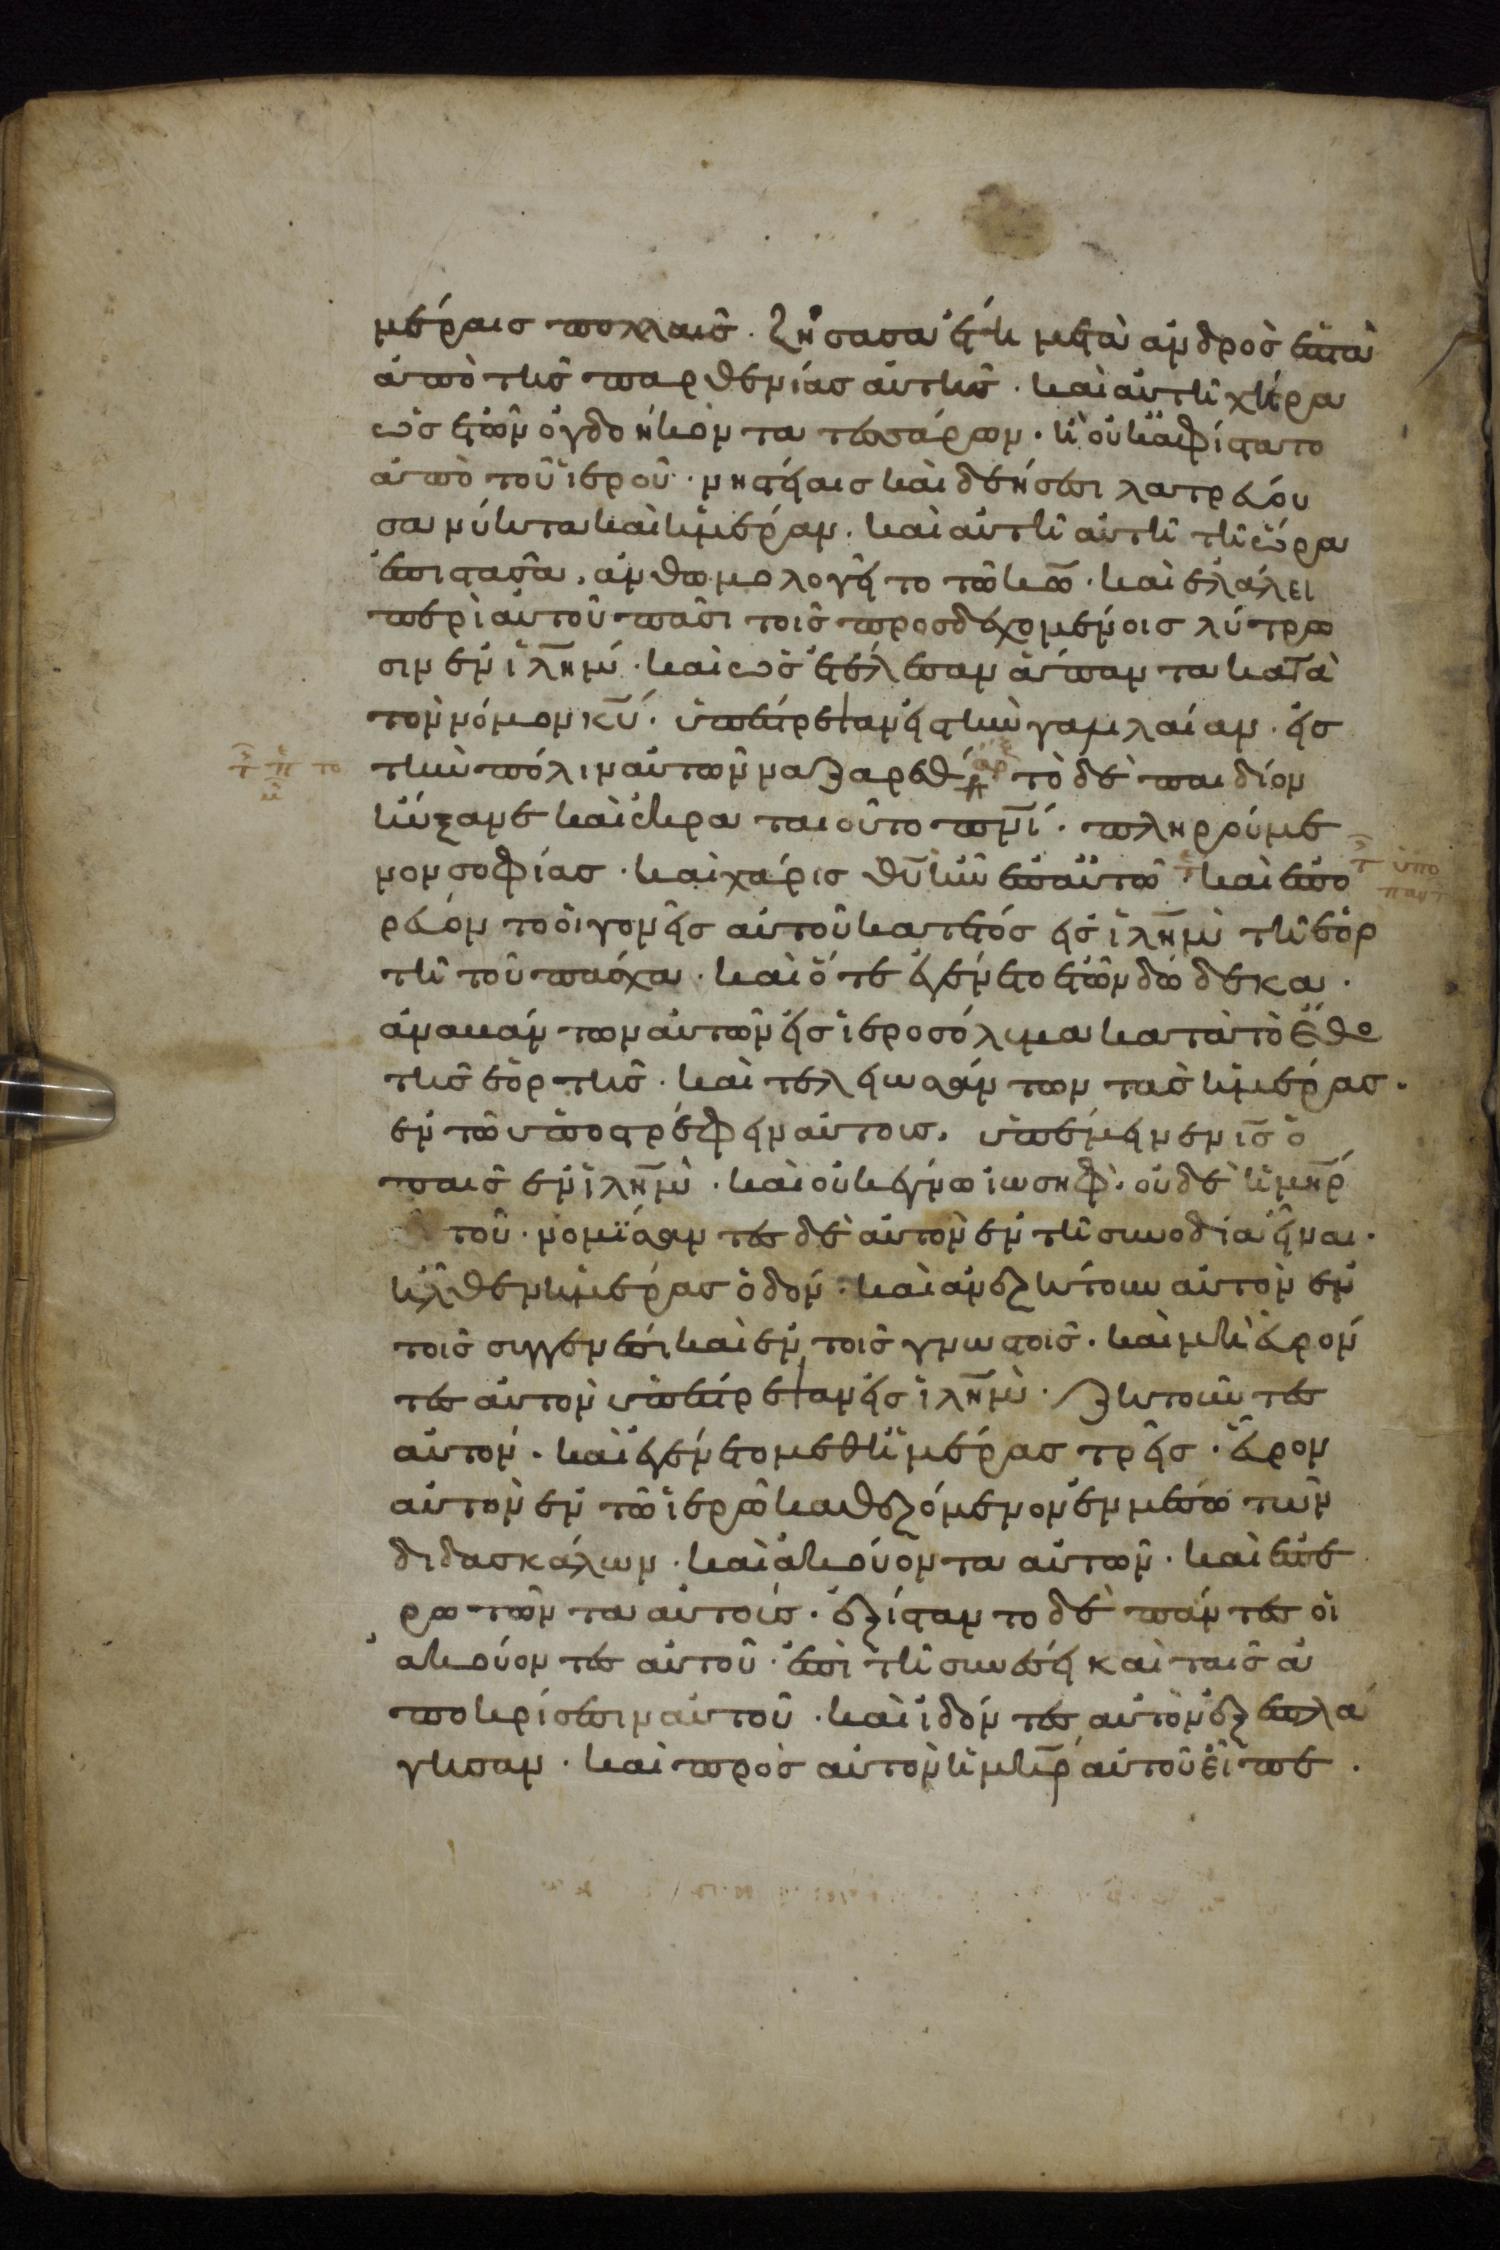 μέραις πολλαῖς· ζήσασα ἔτι μετὰ ἀνδρὸς ἑπτὰ
ἀπὸ τῆς παρθενίας αὐτῆς· καὶ αὐτὴ χήρα
ὡς ἐτῶν ὀγδοήκοντα τεσσάρων· ἣ οὐκ ἀφίστατο
ἀπὸ τοῦ ἱεροῦ· νηστείαις καὶ δεήσεσι λατρεύου
σα νύκτα καὶ ἡμέραν· καὶ αὐτὴ αὐτῇ τῇ ὥρα
ἐπιστᾶσα, ἀνθωμολογεῖτο τῶ κω̅· καὶ ἐλάλει
περὶ αὐτοῦ πᾶσι τοῖς προσδεχομένοις λύτρω
σιν ἐν ἰλη̅μ· καὶ ὡς ἐτέλεσαν ἅπαντα κατὰ
τὸν νόμον κυ̅· ὑπέστρεψαν εἰς τὴν γαλιλαίαν· εἰς
τὴν πόλιν αὐτῶν ναζαρέθ· τὸ δὲ παιδίον
ηὔξανε καὶ ἐκραταιοῦτο πνι̅· πληρούμε
νον σοφίας· καὶ χάρις θυ̅ ἦν ἐπ αὐτῶ· καὶ ἐπο
ρεύοντο οἱ γονεῖς αὐτοῦ κατ ἔτος εἰς ἰλη̅μ τῇ ἑορ
τῇ τοῦ πάσχα· καὶ ὅτε ἐγένετο ἐτῶν δώδεκα·
ἀναβάντων αὐτῶν εἰς ἱεροσόλυμα κατὰ τὸ ἔθο
τῆς ἑορτῆς· καὶ τελειωσάντων τὰς ἡμέρας·
ἐν τῶ ὑποστρέφειν αὐτοὺς, ὑπέμεινεν ις̅ ὁ
παῖς ἐν ἰλη̅μ· καὶ οὐκ ἔγνω ἰωσὴφ· οὐδὲ ἡ μη̅ρ
τοῦ· νομίσαντες δὲ αὐτὸν ἐν τῇ συνοδία εἶναι·
ἦλθεν ἡμέρας ὁδόν· καὶ ἀνεζήτουν αὐτὸν ἐν
τοῖς συγγενέσι καὶ ἐν τοῖς γνωστοῖς· καὶ μὴ εὑρόν
τες αὐτὸν ὑπέστρεψαν εἰς ἰλη̅μ· ζητοῦντες
αὐτόν· καὶ ἐγένετο μεθ ἡμέρας τρεῖς· εὗρον
αὐτὸν ἐν τῶ ἱερῶ καθεζόμενον ἐν μέσω τῶν
διδασκάλων· καὶ ἀκούοντα αὐτῶν· καὶ ἐπε
ρωτῶντα αὐτούς· ἐξίσταντο δὲ πάντες οἱ
ἀκούοντες αὐτοῦ· ἐπὶ τῇ συνέσει καὶ ταῖς ἀ
ποκρίσεσιν αὐτοῦ· καὶ ἰδόντες αὐτὸν ἐξεπλά
γησαν· καὶ πρὸς αὐτὸν ἡ μη̅ρ αὐτοῦ εἶπε·